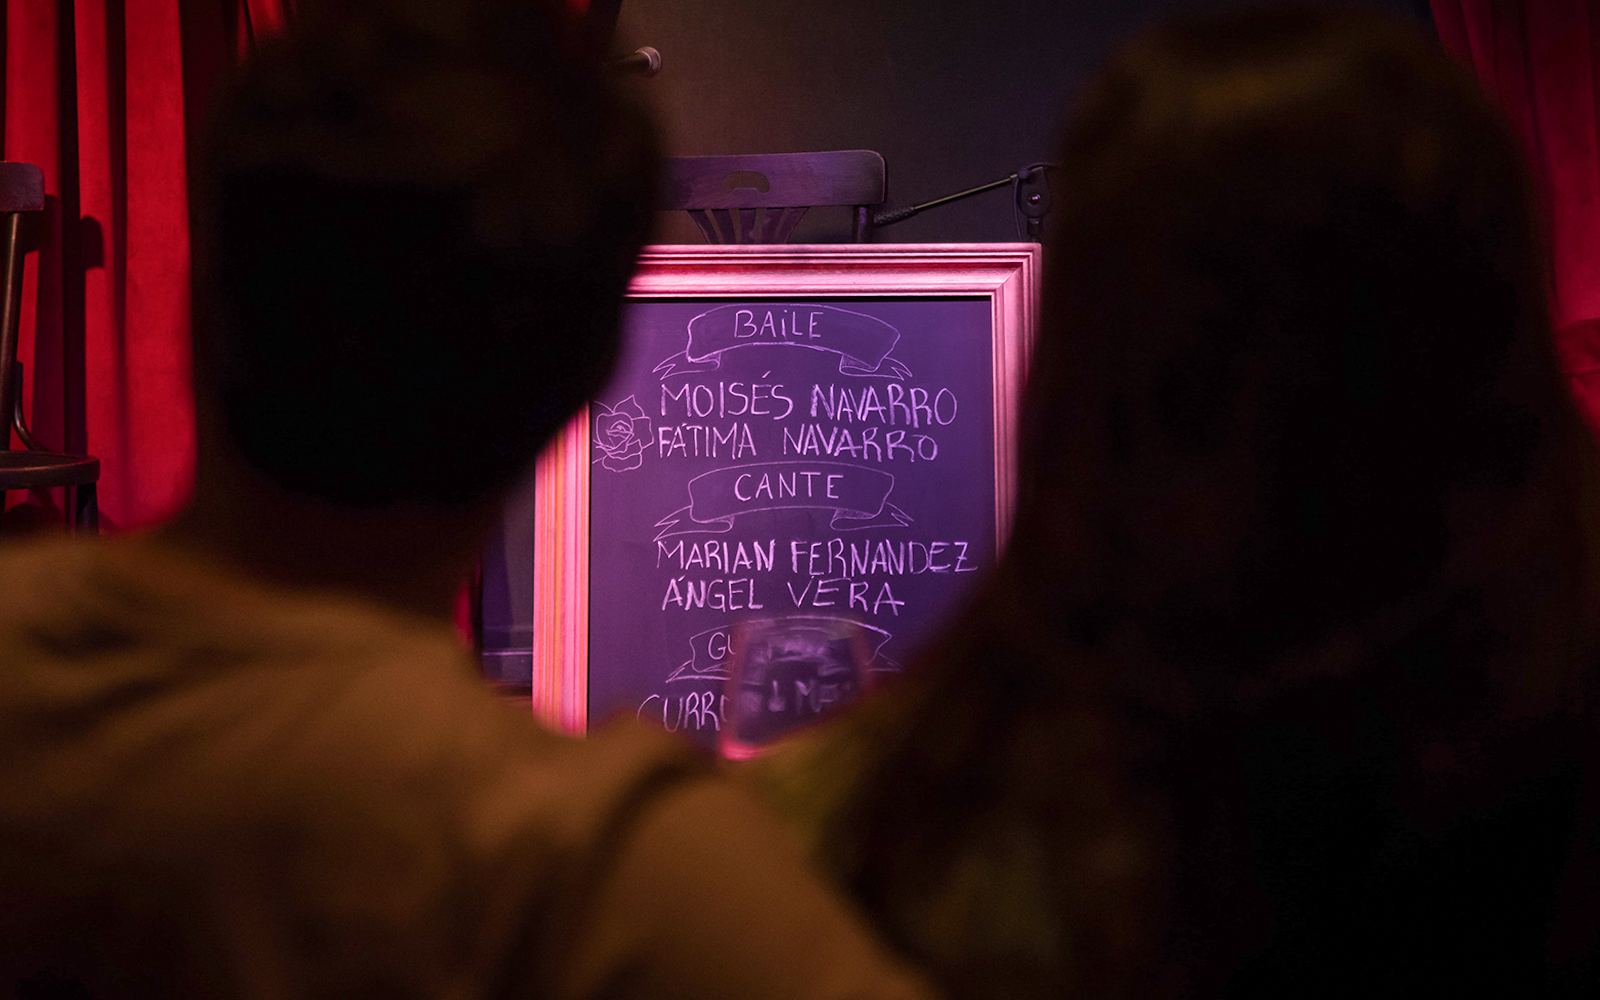 BAiLE
MOISÉS NAVARRO
FÁTIMA NAVARRO
CANTE
MARIAN FERNANDEZ
ÁNGEL VERA